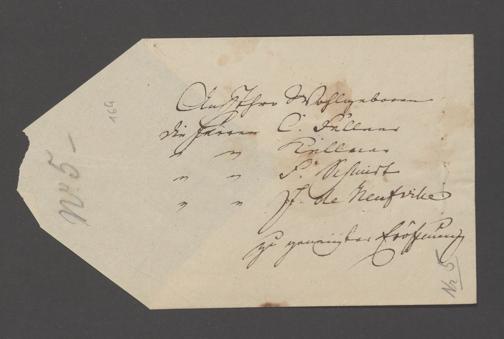 An Ihro Wohlgeboren
die Herren C. Fellner
" " Kellner
" " F. Schmidt
" " de Neufville
zu geneigter Eröffnung
No 5
164
No 5